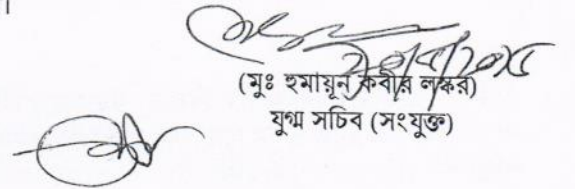 ।
(মুঃ হুমায়ুন কবীর লস্কর)
যুগ্ম সচিব (সংযুক্ত)